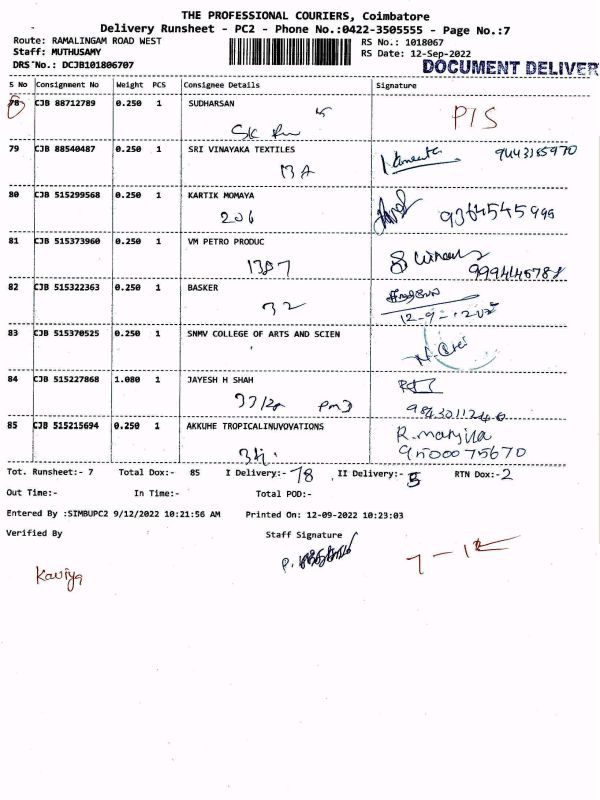 THE PROFESSIONAL COURIERS, Coimbatore
Delivery Runsheet - PC2 - Phone No.:0422-3505555 - Page No.:7
Route: RAMALINGAM ROAD WEST
RS No.: 1018067
Staff: MUTHUSAMY
RS Date: 12-Sep-2022
DRS No.: DCJB101806707
DOCUMENT DELIVER
S No Consignment No Weight PCS Consignee Details Signature
78 CJB 88712789 0.250 1 SUDHARSAN
P/S
79 CJB 88540487 0.250 1 SRI VINAYAKA TEXTILES
80 CJB 515299568 0.250 1 KARTIK MOMAYA
206 9364545995
81 CJB 515373960 0.250 1 VM PETRO PRODUC
82 CJB 515322363 0.250 1 BASKER
32
83 CJB 515370525 0.250 1 SNMV COLLEGE OF ARTS AND SCIEN
84 CJB 515227868 1.080 1 JAYESH H SHAH
85 CJB 515215694 0.250 1 AKKUHE TROPICALINUVOVATIONS
R. manjula
9500075670
Tot. Runsheet:- 7 Total Dox:- 85 I Delivery:- 78 II Delivery:- 5 RTN Dox:- 2
Out Time:- In Time:- Total POD:-
Entered By :SIMBUPC2 9/12/2022 10:21:56 AM Printed On: 12-09-2022 10:23:03
Verified By Staff Signature
Kaviya